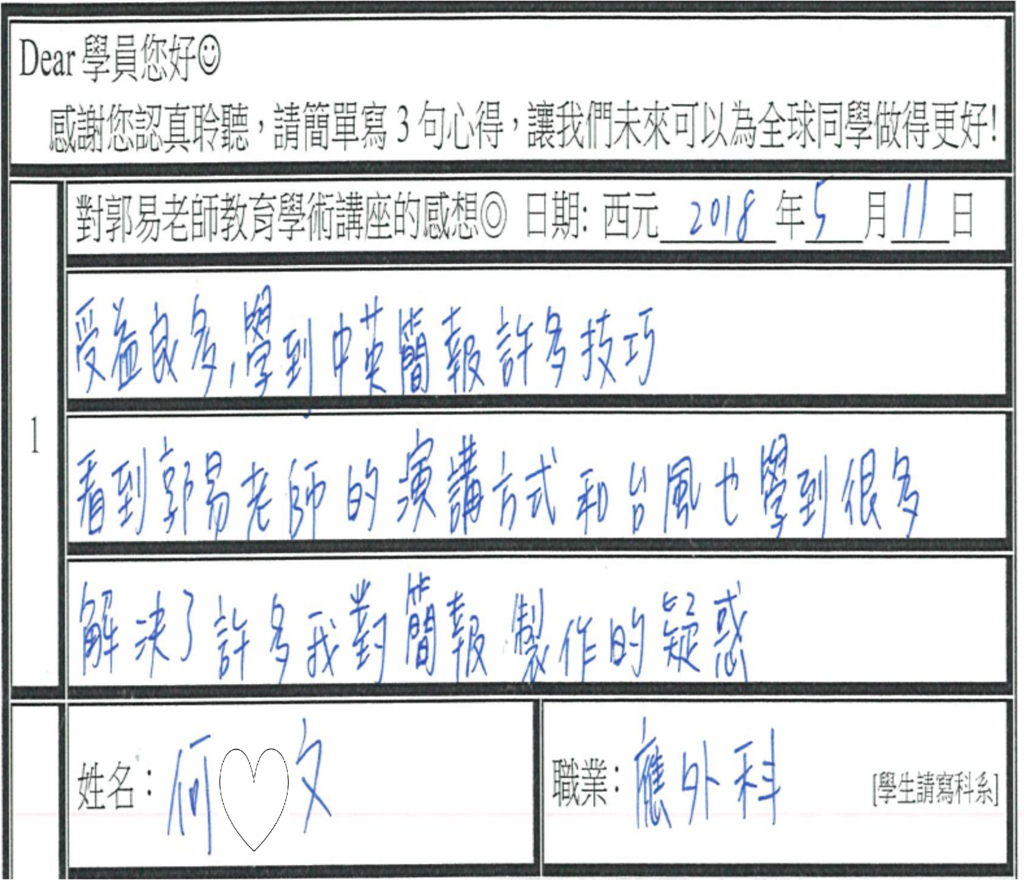 Dear 學員您好☺
感謝您認真聆聽，請簡單寫 3 句心得，讓我們未來可以為全球同學做得更好!
對郭易老師教育學術講座的感想◎ 日期: 西元 2018 年 5 月 11 日
1
受益良多,學到中英簡報許多技巧
看到郭易老師的演講方式和台風也學到很多
解決了許多我對簡報製作的疑惑
姓名：何♡文
職業：應外科 [學生請寫科系]